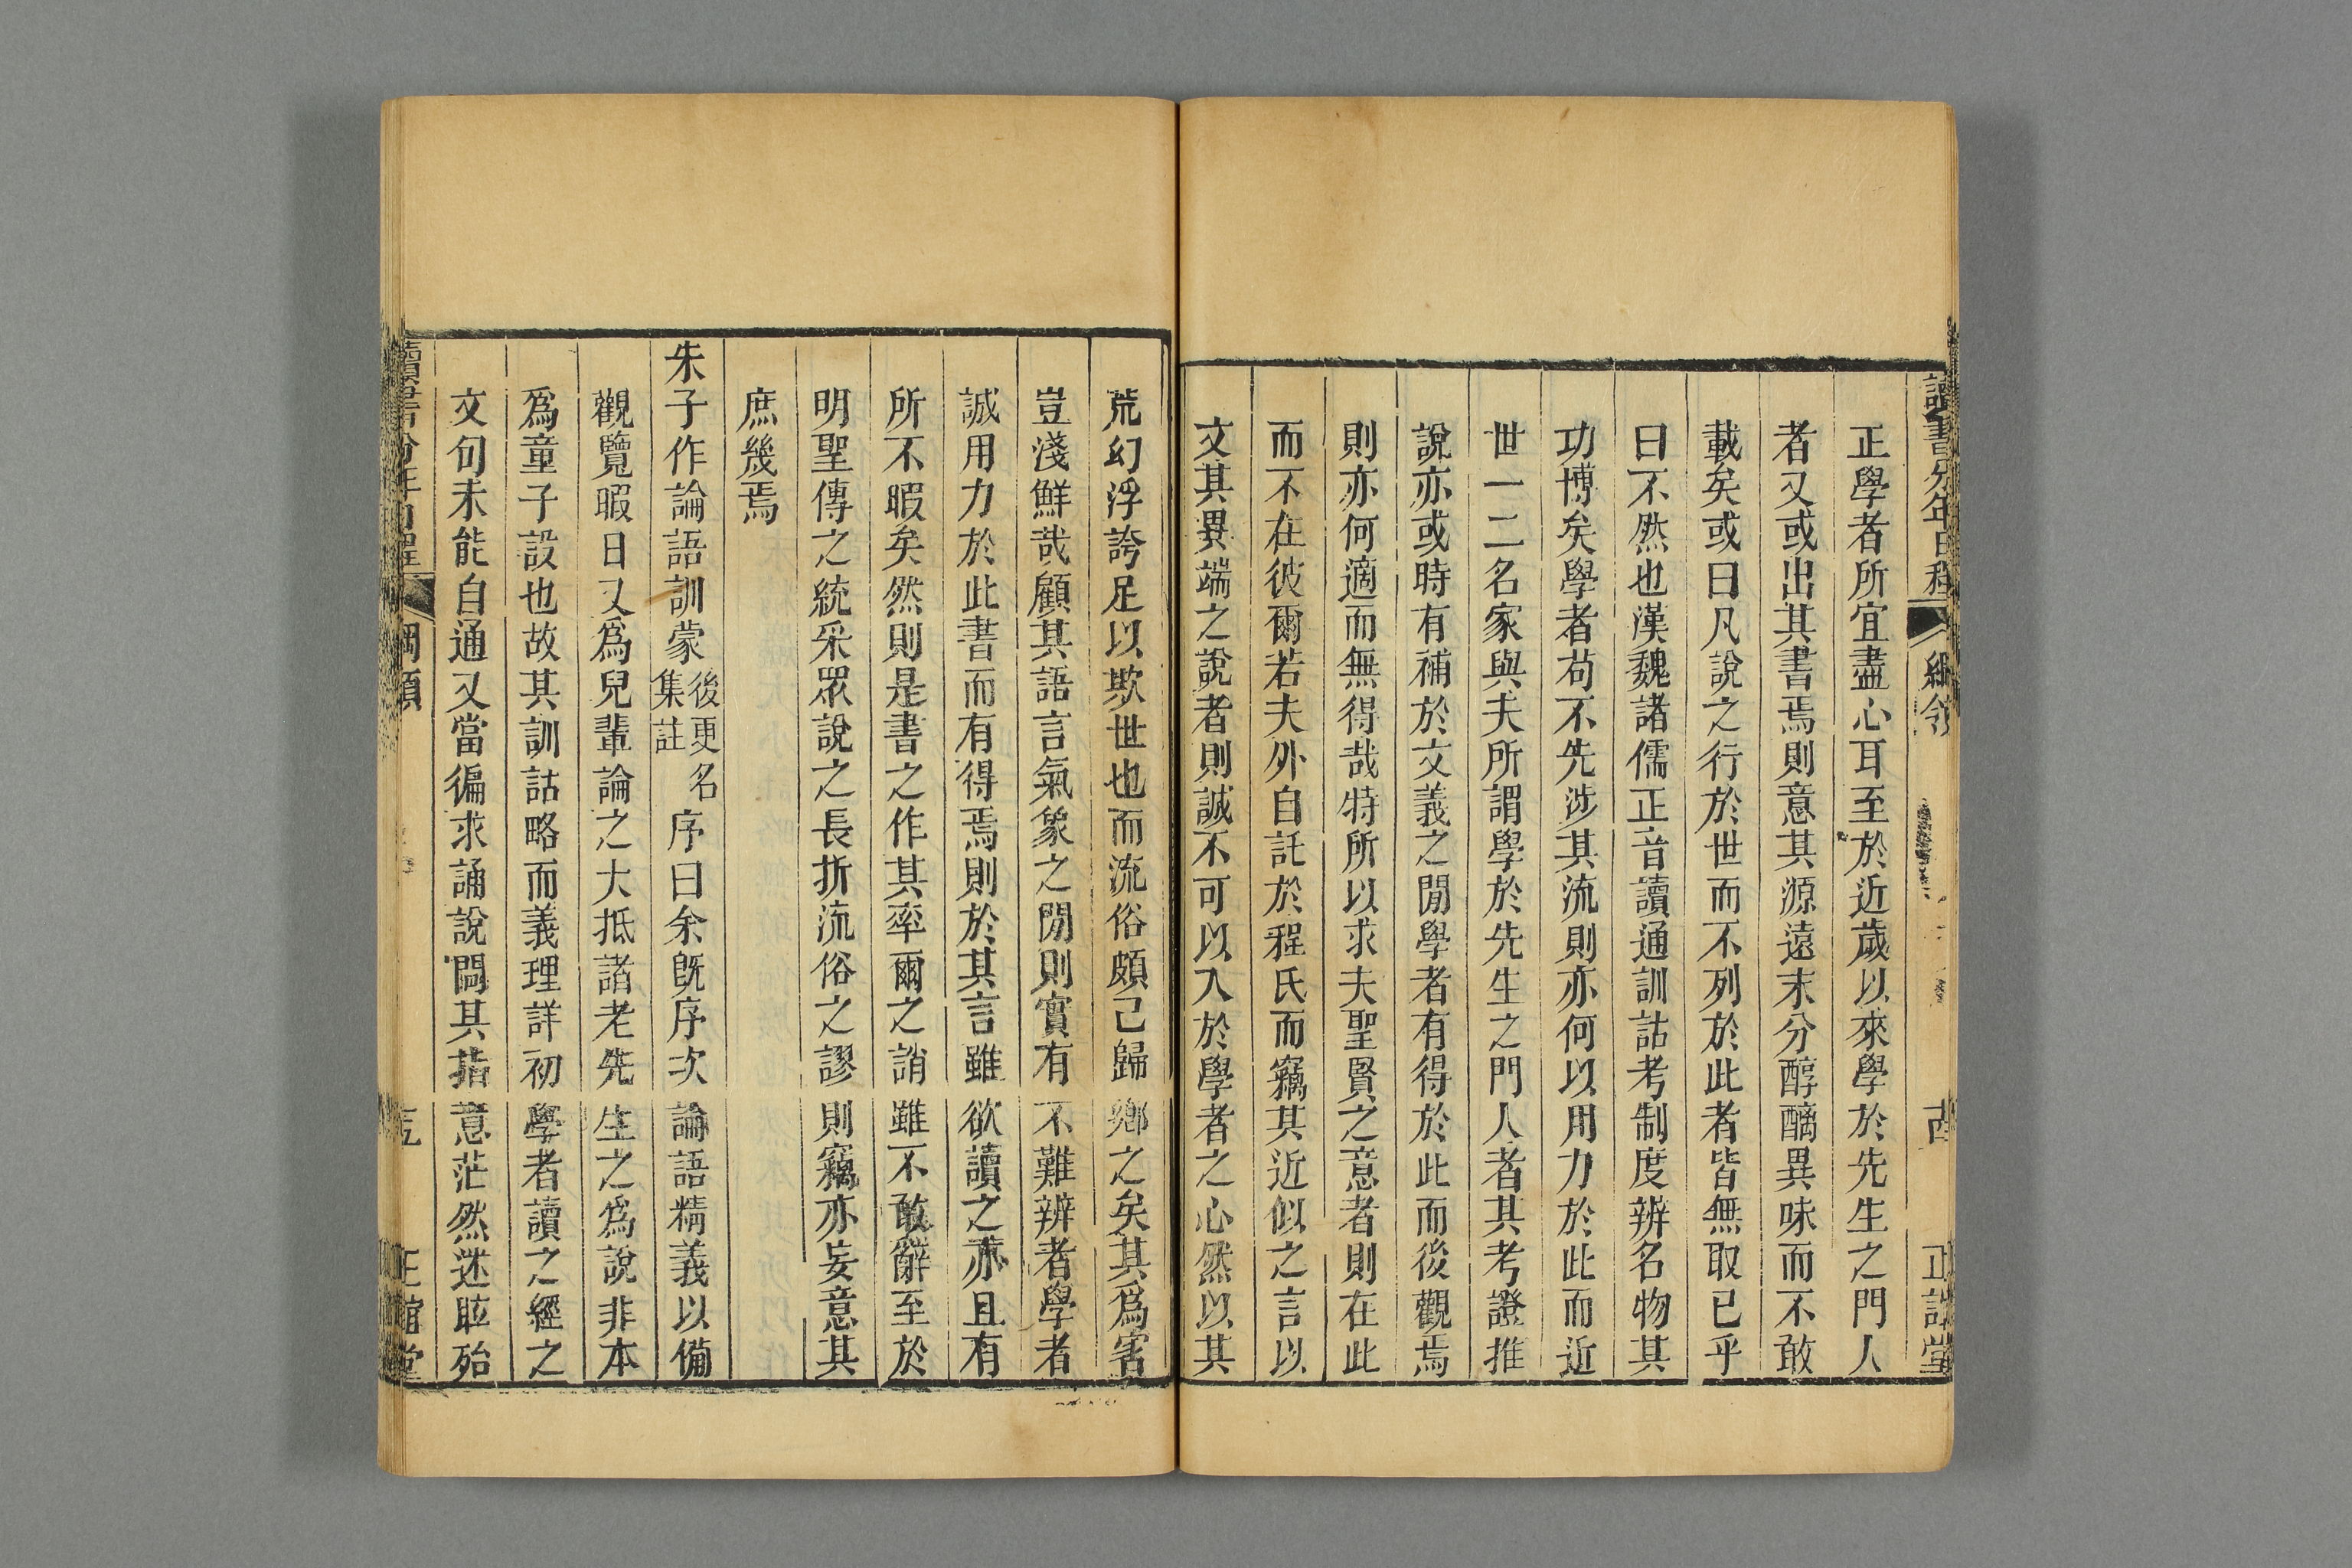 讀書分年日程 綱領 正誼堂
正學者所宜盡心耳至於近歲以來學於先生之門人
者又或出其書焉則意其源遠末分醇醨異味而不敢
載矣或曰凡說之行於世而不列於此者皆無取已乎
曰不然也漢魏諸儒正音讀通訓詁考制度辨名物其
功博矣學者苟不先涉其流則亦何以用力於此而近
世一二名家與夫所謂學於先生之門人者其考證推
說亦或時有補於文義之閒學者有得於此而後觀焉
則亦何適而無得哉特所以求夫聖賢之意者則在此
而不在彼爾若夫外自託於程氏而竊其近似之言以
文其異端之說者則誠不可以入於學者之心然以其
荒幻浮誇足以欺世也而流俗頗已歸鄉之矣其爲害
豈淺鮮哉顧其語言氣象之閒則實有不難辨者學者
誠用力於此書而有得焉則於其言雖欲讀之亦且有
所不暇矣然則是書之作其率爾之誚雖不敢辭至於
明聖傳之統采眾說之長折流俗之謬則竊亦妄意其
庶幾焉
朱子作論語訓蒙後更名集註序曰余既序次論語精義以備
觀覽暇日又爲兒輩論之大抵諸老先生之爲說非本
爲童子設也故其訓詁略而義理詳初學者讀之經之
文句未能自通又當徧求誦說問其指意茫然迷眩殆
讀書分年日程 綱領 正誼堂